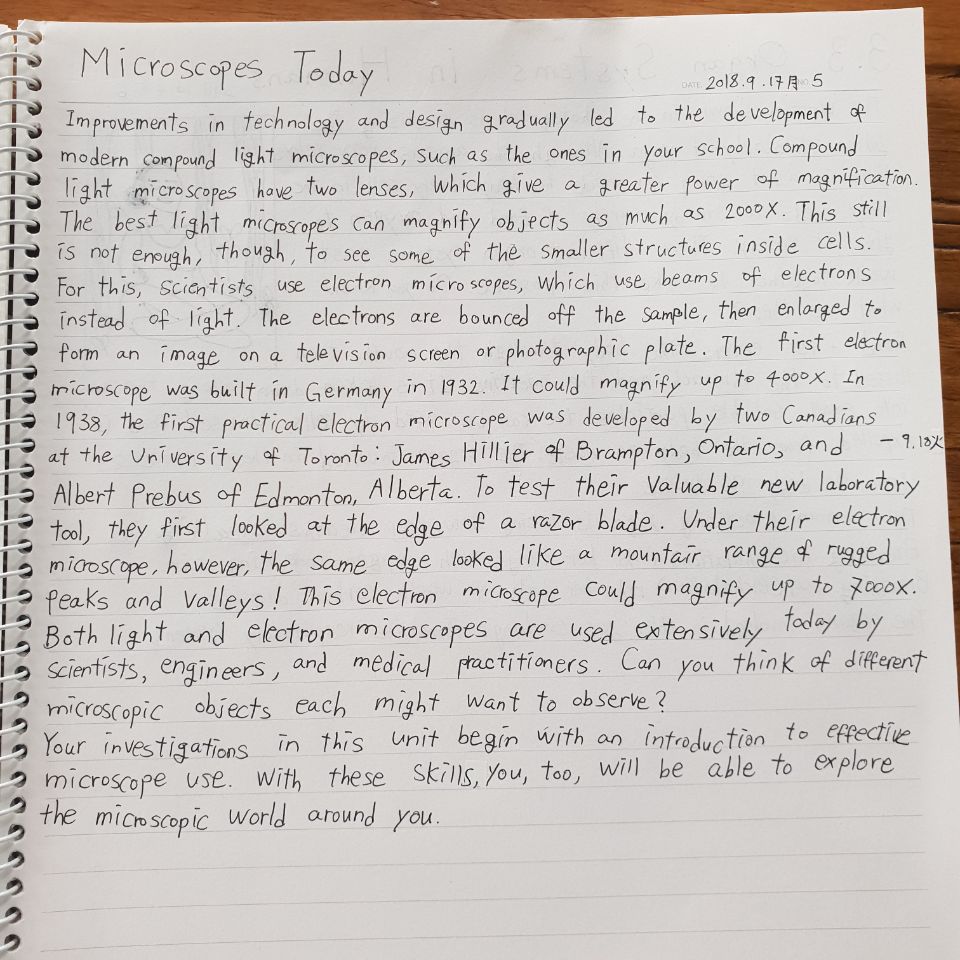 Microscopes Today
DATE 2018.9.17月 NO. 5
Improvements in technology and design gradually led to the development of
modern compound light microscopes, such as the ones in your school. Compound
light microscopes have two lenses, which give a greater power of magnification.
The best light microscopes can magnify objects as much as 2000X. This still
is not enough, though, to see some of the smaller structures inside cells.
For this, scientists use electron microscopes, which use beams of electrons
instead of light. The electrons are bounced off the sample, then enlarged to
form an image on a television screen or photographic plate. The first electron
microscope was built in Germany in 1932. It could magnify up to 4000X. In
1938, the first practical electron microscope was developed by two Canadians
at the University of Toronto: James Hillier of Brampton, Ontario, and – 9.18火
Albert Prebus of Edmonton, Alberta. To test their valuable new laboratory
tool, they first looked at the edge of a razor blade. Under their electron
microscope, however, the same edge looked like a mountain range of rugged
peaks and valleys! This electron microscope could magnify up to 7000X.
Both light and electron microscopes are used extensively today by
scientists, engineers, and medical practitioners. Can you think of different
microscopic objects each might want to observe?
Your investigations in this unit begin with an introduction to effective
microscope use. With these skills, you, too, will be able to explore
the microscopic world around you.